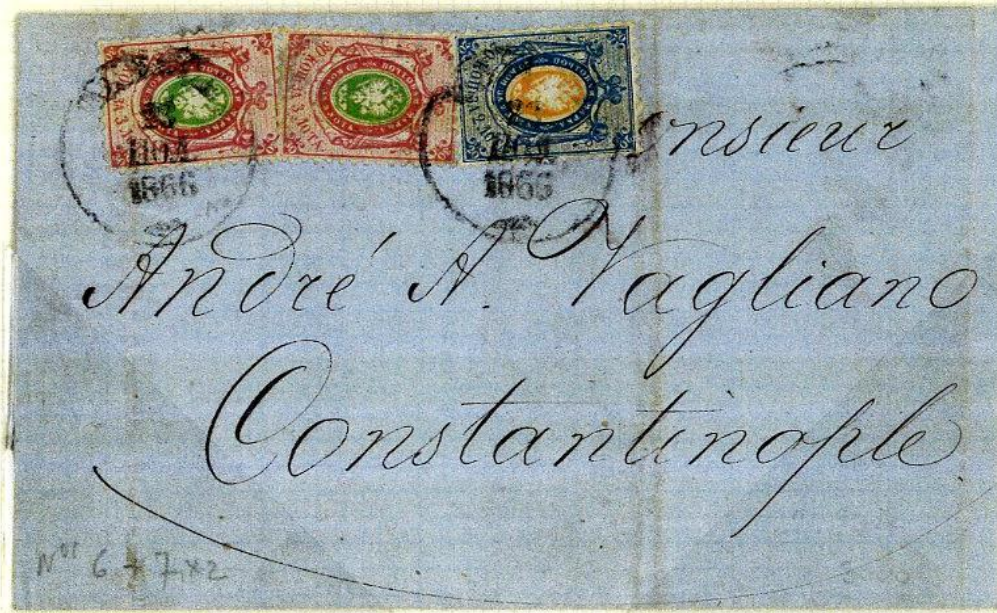 ІЮЛ
1866
ІЮЛ
1866
onsieur
André A. Vagliano
Constantinople
Nos 6 + 7 x 2